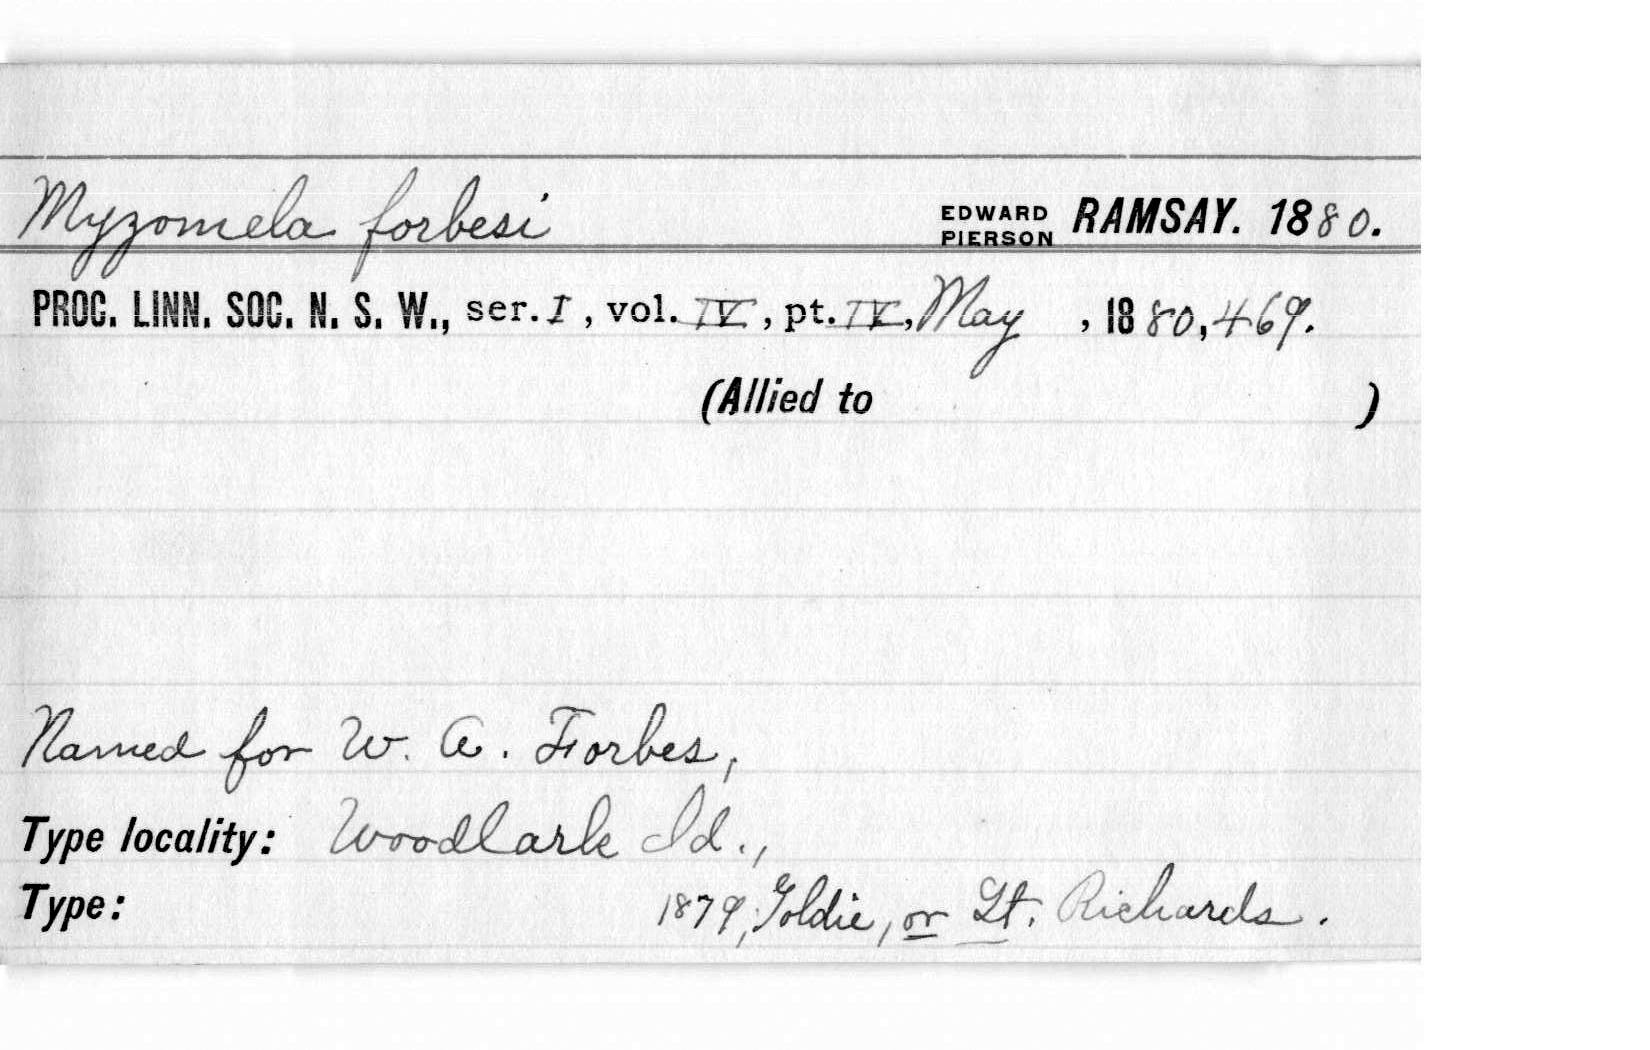 Myzomela forbesi EDWARD PIERSON RAMSAY. 1880.
PROC. LINN. SOC. N. S. W., ser. I, vol. IV, pt. IV, May, 1880, 469.
(Allied to )
Named for W. A. Forbes,
Type locality: Woodlark Id.,
Type: 1879, Goldie, or Lt. Richards.